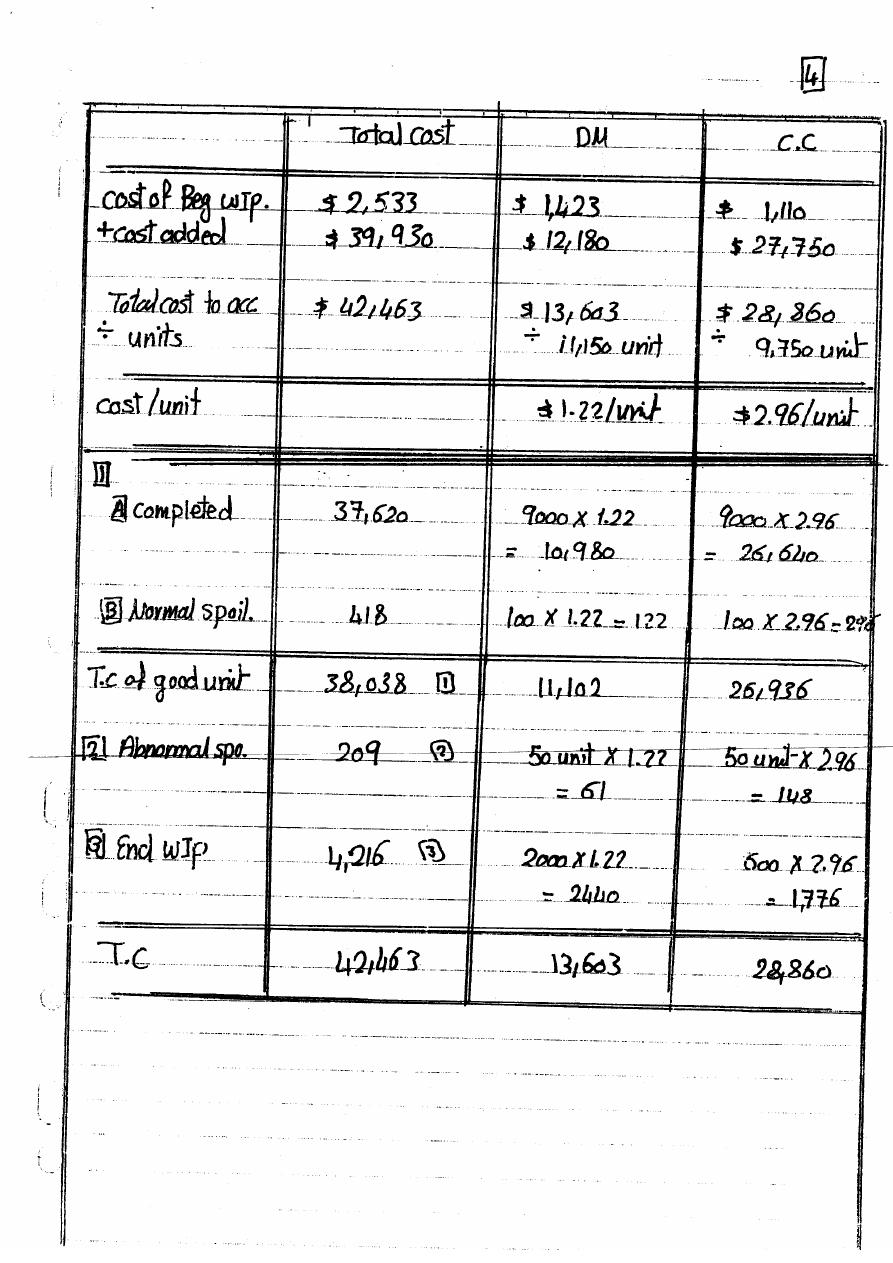 4
Total Cost DM C.C
Cost of Beg WIP. $ 2,533 $ 1,423 $ 1,110
+cost added $ 39,930 $ 12,180 $ 27,750
Total cost to acc $ 42,463 $ 13,603 $ 28,860
÷ units ÷ 11,150 unit ÷ 9,750 unit
cost/unit $ 1.22/unit $2.96/unit
1
A Completed 37,620 9000 X 1.22 9000 X 2.96
= 10,980 = 26,640
B Normal Spoil. 418 100 X 1.22 = 122 100 X 2.96 = 296
T.C of good unit 38,038 1 11,102 26,936
2 Abnormal spo. 209 2 50 unit X 1.22 50 unit X 2.96
= 61 = 148
3 End WIP 4,216 3 2000 X 1.22 600 X 2.96
= 2440 = 1,776
T.C 42,463 13,603 28,860